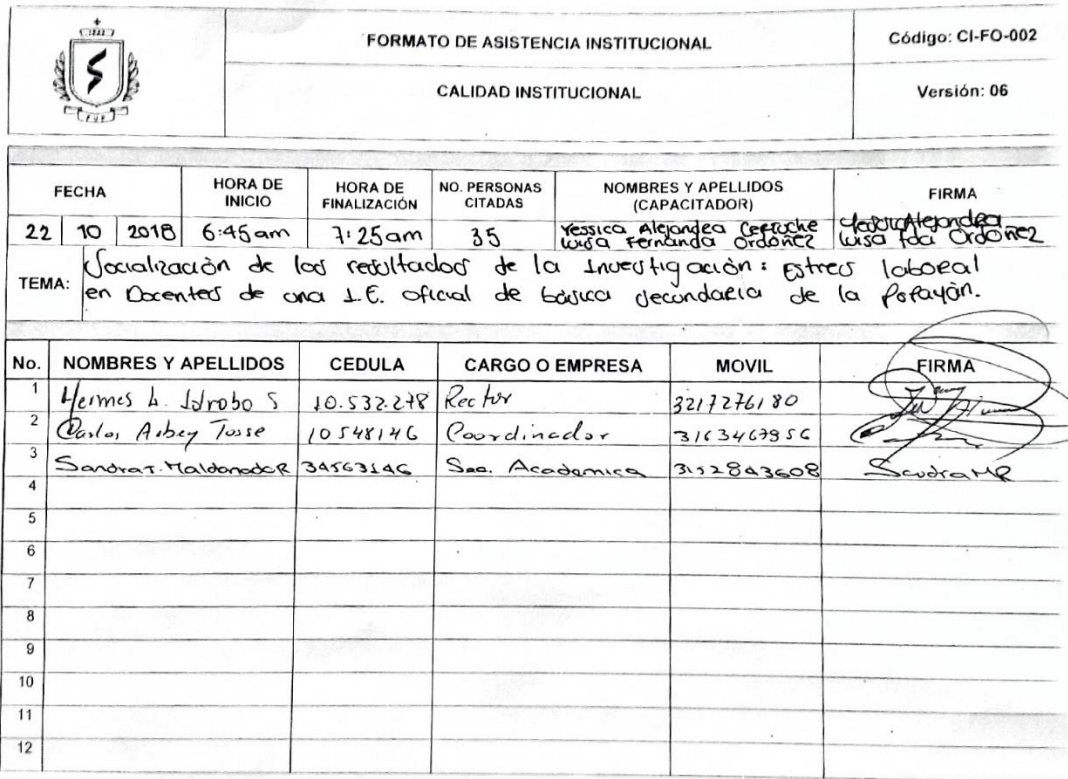 FORMATO DE ASISTENCIA INSTITUCIONAL
Código: CI-FO-002
CALIDAD INSTITUCIONAL
Versión: 06
F.U.P.
FECHA
HORA DE INICIO
HORA DE FINALIZACIÓN
NO. PERSONAS CITADAS
NOMBRES Y APELLIDOS (CAPACITADOR)
FIRMA
22 10 2018 6:45am 7:25am 35
Yessica Alejandra Certuche
Luisa Fernanda Ordoñez
Alejandra
Luisa Ordoñez
TEMA: Socialización de los resultados de la Investigación: Estres laboral
en Docentes de una I.E. oficial de básica secundaria de la Popayán.
No. NOMBRES Y APELLIDOS CEDULA CARGO O EMPRESA MOVIL FIRMA
1 Hermes L. Idrobo S 10.532.278 Rector 3217276180
2 Carlos Arbey Tosse 10548146 Coordinador 3163467956
3 Sandra T. Maldonado R 34563146 Sec. Academica 3152843608 Sandra MR
4
5
6
7
8
9
10
11
12